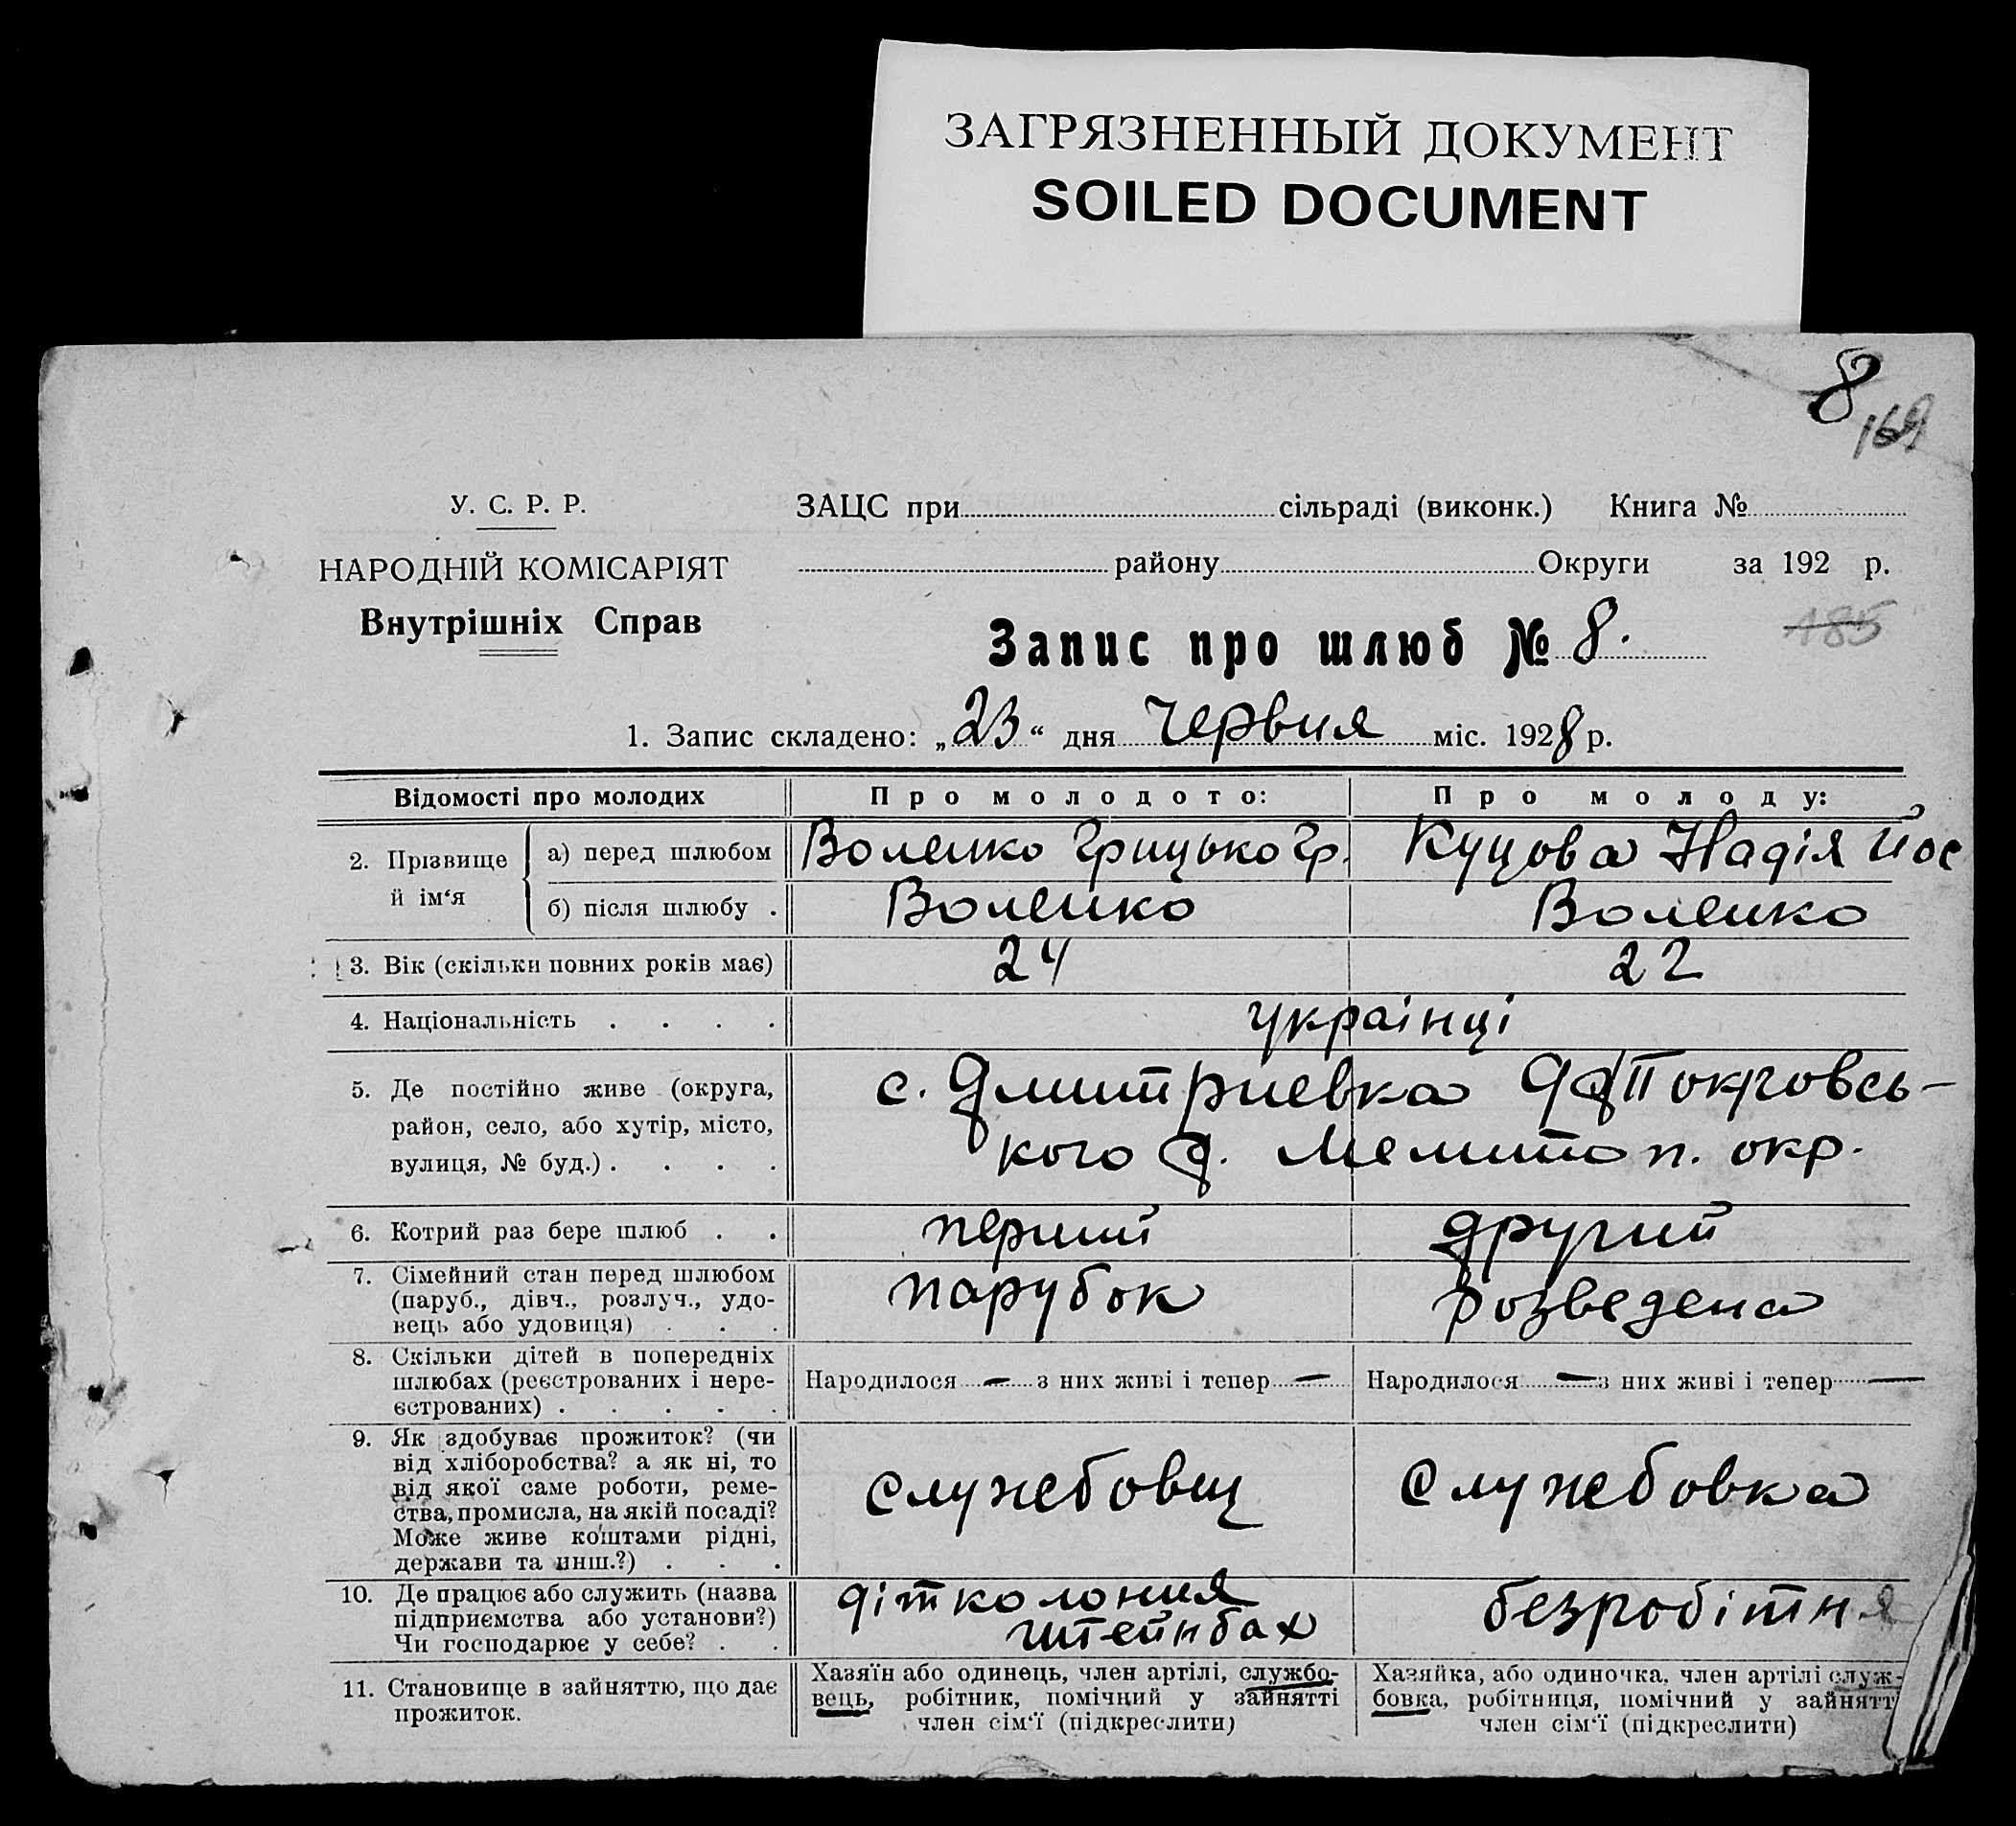 ЗАГРЯЗНЕННЫЙ ДОКУМЕНТ
SOILED DOCUMENT
8
169
У. С. Р. Р.
НАРОДНІЙ КОМІСАРІЯТ
Внутрішніх Справ
ЗАЦС при сільраді (виконк.) Книга №
району Округи за 192 р.
185
Запис про шлюб № 8.
1. Запис складено: „23“ дня червня міс. 1928 р.
Відомості про молодих Про молодого: Про молоду:
2. Прізвище й ім‘я а) перед шлюбом Воленко Грицько Гр. Куцова Надія Йос
б) після шлюбу . Воленко Воленко
3. Вік (скільки повних років має) 24 22
4. Національність . . . . українці
5. Де постійно живе (округа, район, село, або хутір, місто, вулиця, № буд.) . . . .
с. Дмитриевка Покровсь-
кого Мелитоп. окр.
6. Котрий раз бере шлюб . . перший другий
7. Сімейний стан перед шлюбом (паруб., дівч., розлуч., удо-
вець або удовиця) . . . парубок розведена
8. Скільки дітей в попередніх
шлюбах (реєстрованих і нере-
єстрованих) . . . . .
Народилося — з них живі і тепер — Народилося — з них живі і тепер —
9. Як здобуває прожиток? (чи
від хліборобства? а як ні, то
від якої саме роботи, реме-
ства, промисла, на якій посаді?
Може живе коштами рідні,
держави та инш.?) . . .
службовец службовка
10. Де працює або служить (назва
підприємства або установи?)
Чи господарює у себе? . .
дітколония
штейнбах
безробітня
11. Становище в зайняттю, що дає
прожиток.
Хазяїн або одинець, член артілі, службо-
вець, робітник, помічний у зайнятті
член сім‘ї (підкреслити)
Хазяйка, або одиночка, член артілі служ-
бовка, робітниця, помічний у зайнятті
член сім‘ї (підкреслити)